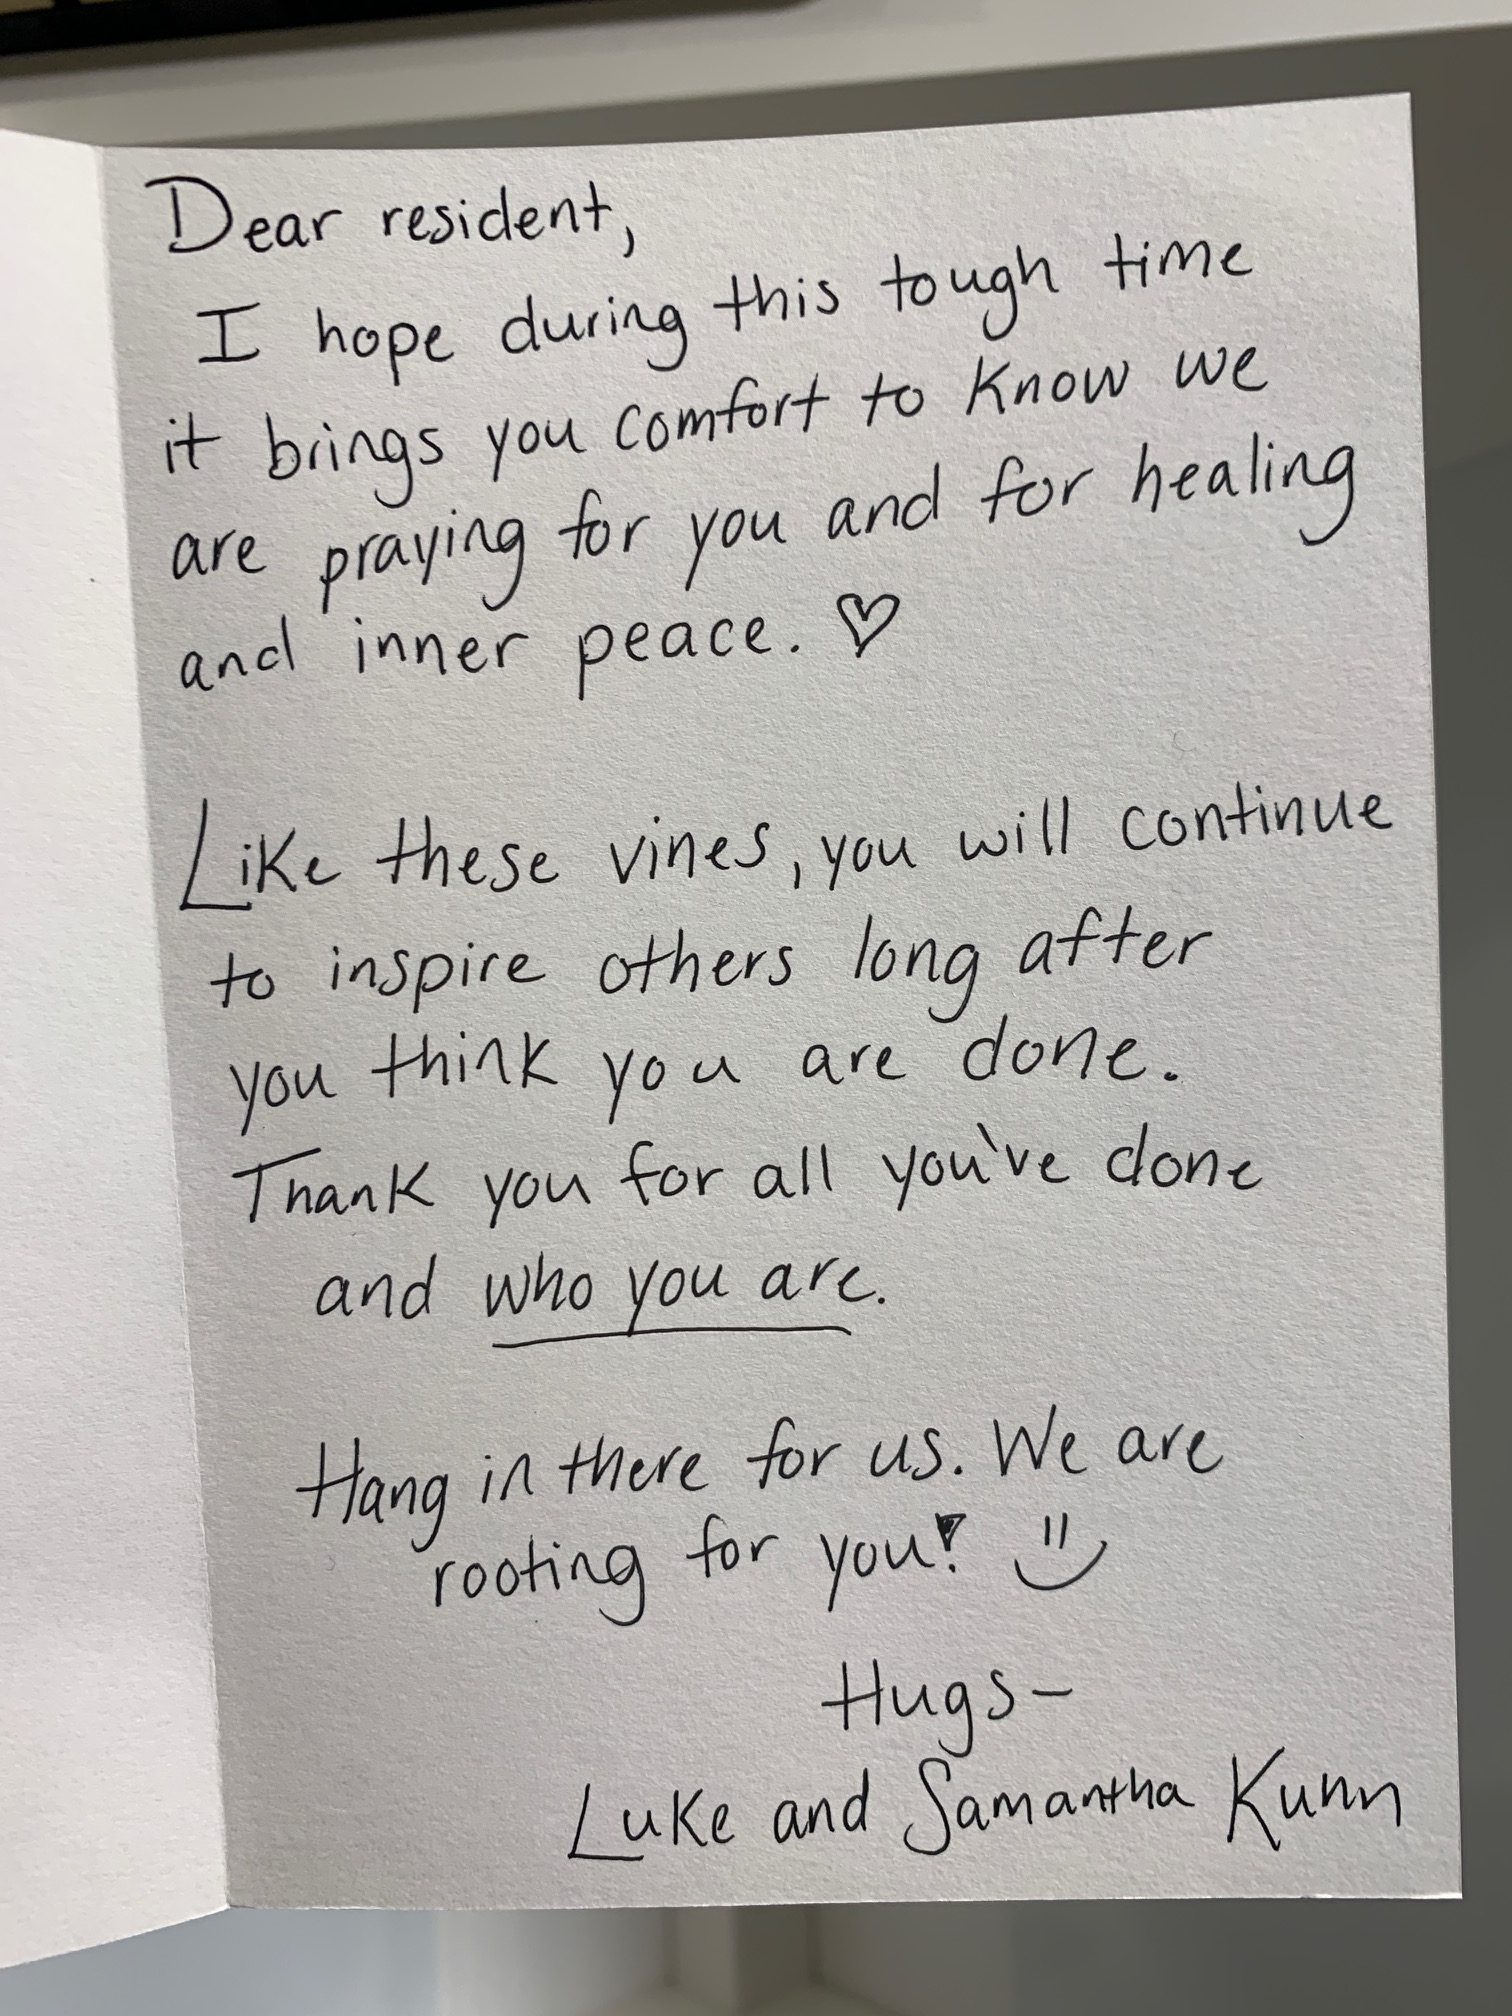 Dear resident,
I hope during this tough time
it brings you comfort to know we
are praying for you and for healing
and inner peace. ♡
Like these vines, you will continue
to inspire others long after
you think you are done.
Thank you for all you've done
and who you are.
Hang in there for us. We are
rooting for you!
Hugs-
Luke and Samantha Kunn